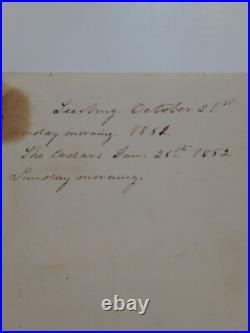 Leesburg. October 21.st
Sunday morning. 1852.
The Cedars. Jan. 25th 1852
Sunday morning.